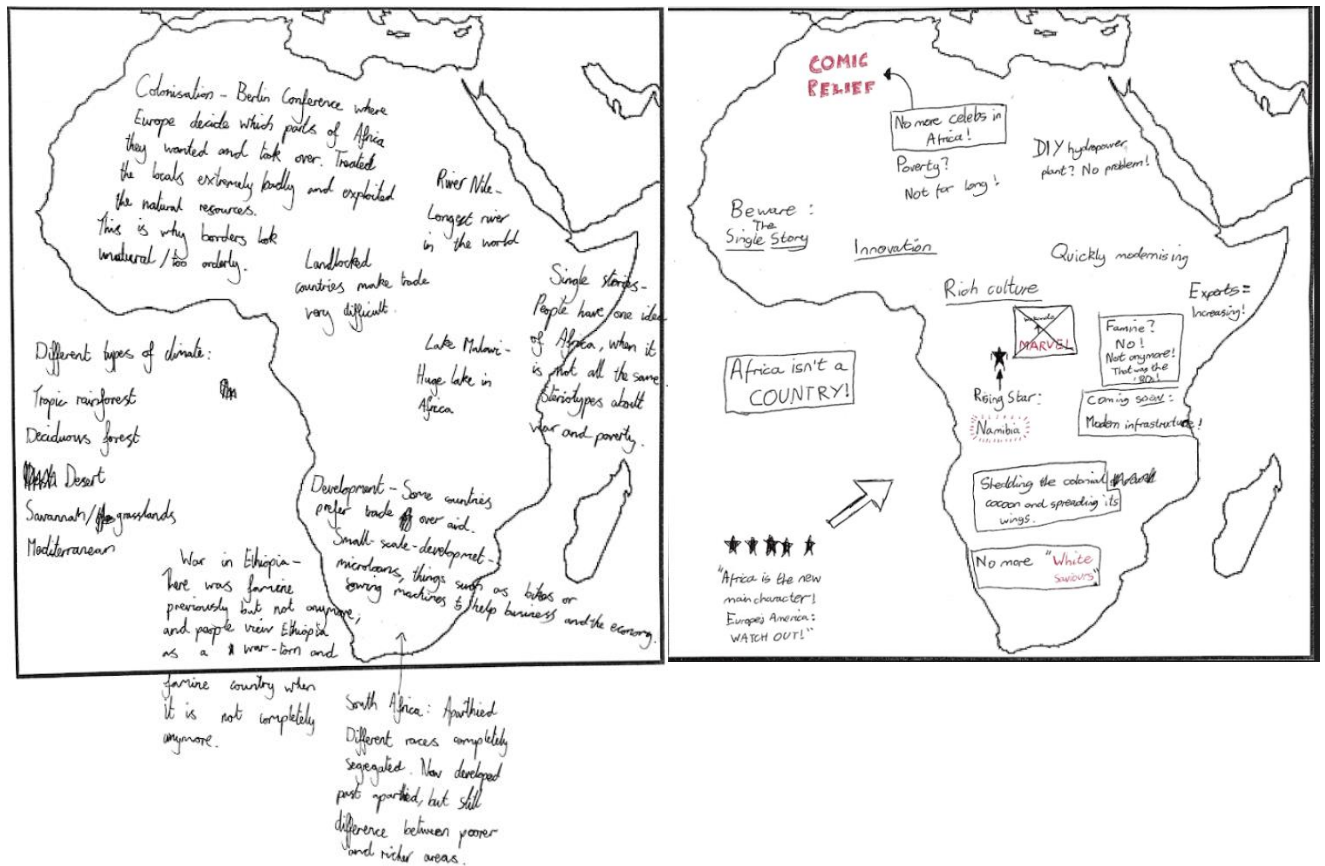 Colonisation - Berlin Conference where
Europe decide which parts of Africa
they wanted and took over. Treated
the locals extremely badly and exploited
the natural resources.
This is why borders look
unatural/too orderly.
River Nile -
Longest river
in the world
Landlocked
countries make trade
very difficult.
Single stories -
People have one idea
of Africa, when it
is not all the same.
Steriotypes about
war and poverty.
Lake Malawi -
Huge lake in
Africa
Different types of climate:
Tropic rainforest
Deciduous forest
Desert
Savannah/grasslands
Mediterranean
Development - Some countries
prefer trade over aid.
Small-scale-developmet -
microloans, things such as bikes or
sewing machines to help business and the economy.
War in Ethiopia -
There was famine
previously but not anymore,
and people view Ethiopia
as a war-torn and
famine country when
it is not completely
anymore.
South Africa: Aparthied
Different races completely
segregated. Now developed
past aparthied, but still
difference between poorer
and richer areas.
COMIC
RELIEF
No more celebs in
Africa!
Poverty?
Not for long!
DIY hydropower
plant? No problem!
Beware:
The
Single Story
Innovation
Quickly modernising
Rich culture
Exports =
Increasing!
MARVEL
Famine?
No!
Not anymore!
That was the
'80s!
Africa isn't a
COUNTRY!
Rising Star:
Namibia
Coming soon:
Modern infrastructure!
Shedding the colonial
cocoon and spreading its
wings.
No more "White
Saviours"
"Africa is the new
main character!
Europe, America:
WATCH OUT!"